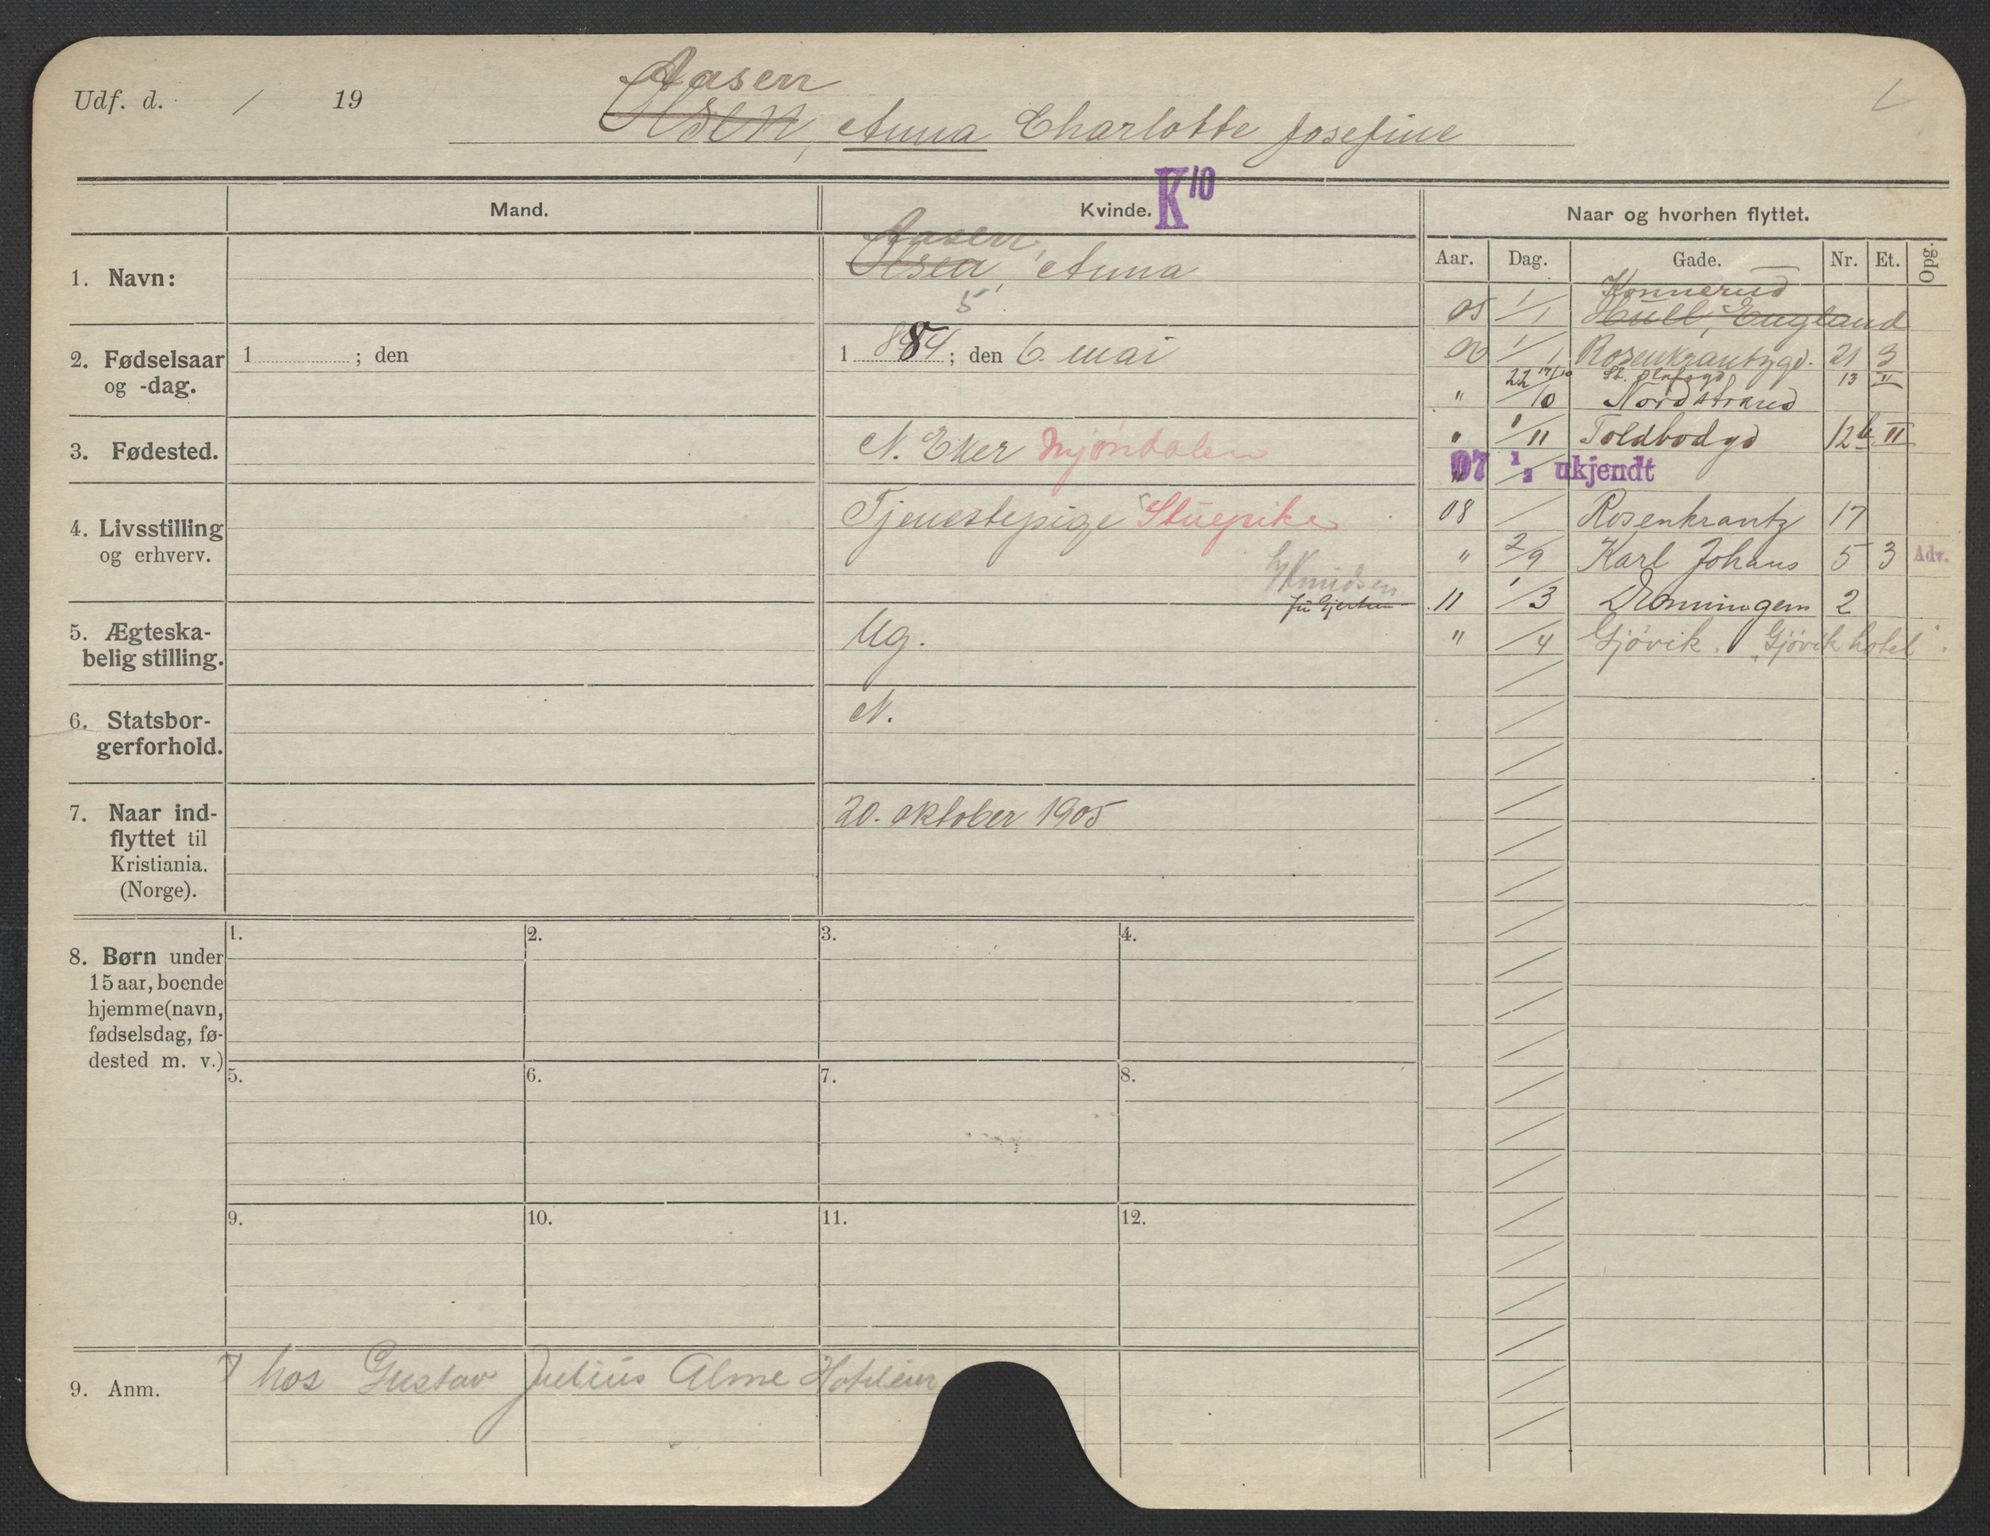 Udf. d. / 19
Aasen
Olsen, Anna Charlotte Josefine
Mand.
Kvinde.
K10
Naar og hvorhen flyttet.
Aar. Dag. Gade. Nr. Et. Opg.
1. Navn:
Aasen,
Olsen, Anna
2. Fødselsaar og -dag.
1 ; den
5
1 884 ; den 6. mai
3. Fødested.
N. Eker Mjøndalen
4. Livsstilling og erhverv.
Tjenestepige Stuepike
Knudsen
5. Ægteska-
belig stilling.
Ug.
6. Statsbor-
gerforhold.
N.
7. Naar ind-
flyttet til
Kristiania.
(Norge).
20. oktober 1905
Konnerud
05 1/1 Hull, England
06 1/1 Rosenkrantzgd. 21 3
17/10 St. Olafsgd 13 II
" 22/10 Nordstrand
" 1/11 Toldbodgd 12b II
07 1/2 ukjendt
08 / Rosenkrantz 17
" 2/9 Karl Johans 5 3 Adv.
11 1/3 Dronningens 2
" /4 Gjøvik. "Gjøvik hotel".
8. Børn under
15 aar, boende
hjemme (navn,
fødselsdag, fø-
dested m. v.)
1. 2. 3. 4.
5. 6. 7. 8.
9. 10. 11. 12.
9. Anm.
hos Gustav Julius Alme Hoteleier